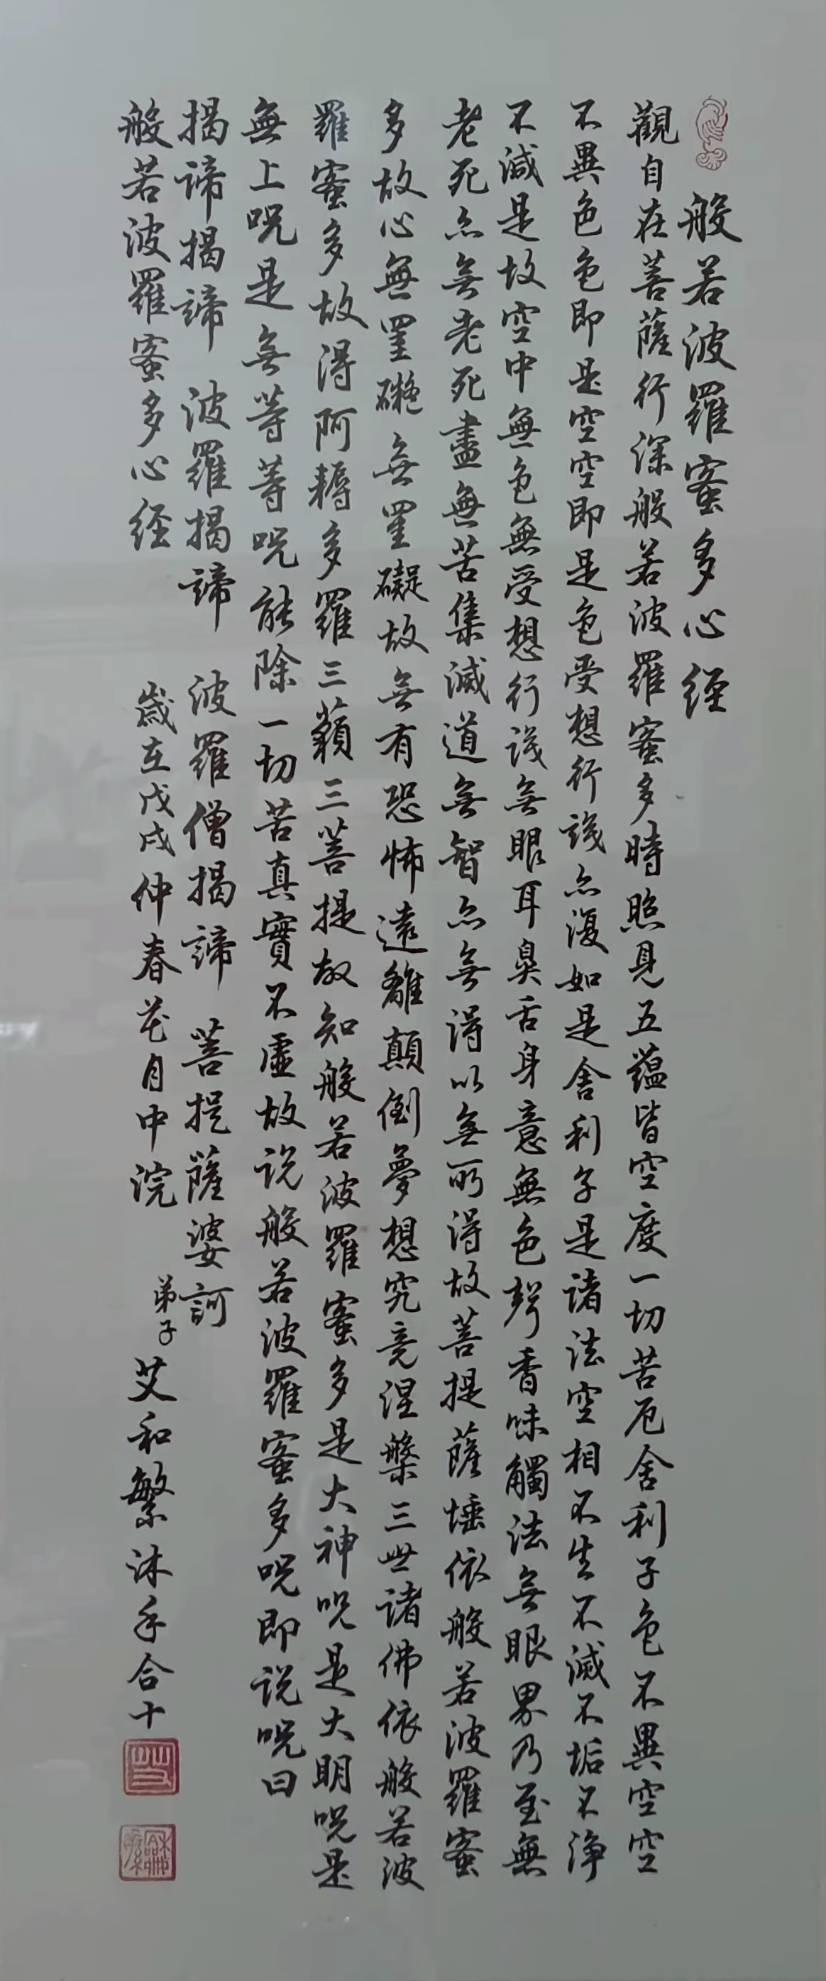 般若波羅蜜多心經
觀自在菩薩行深般若波羅蜜多時照見五蘊皆空度一切苦厄舍利子色不異空空
不異色色即是空空即是色受想行識亦復如是舍利子是諸法空相不生不滅不垢不淨
不減是故空中無色無受想行識無眼耳鼻舌身意無色聲香味觸法無眼界乃至無
老死亦無老死盡無苦集滅道無智亦無得以無所得故菩提薩埵依般若波羅蜜
多故心無罣礙無罣礙故無有恐怖遠離顛倒夢想究竟涅槃三世諸佛依般若波
羅蜜多故得阿耨多羅三藐三菩提故知般若波羅蜜多是大神咒是大明咒是
無上咒是無等等咒能除一切苦真實不虛故說般若波羅蜜多咒即說咒曰
揭諦揭諦 波羅揭諦 波羅僧揭諦 菩提薩婆訶
般若波羅蜜多心經 歲在戊戌仲春花月中浣 弟子艾和繁沐手合十